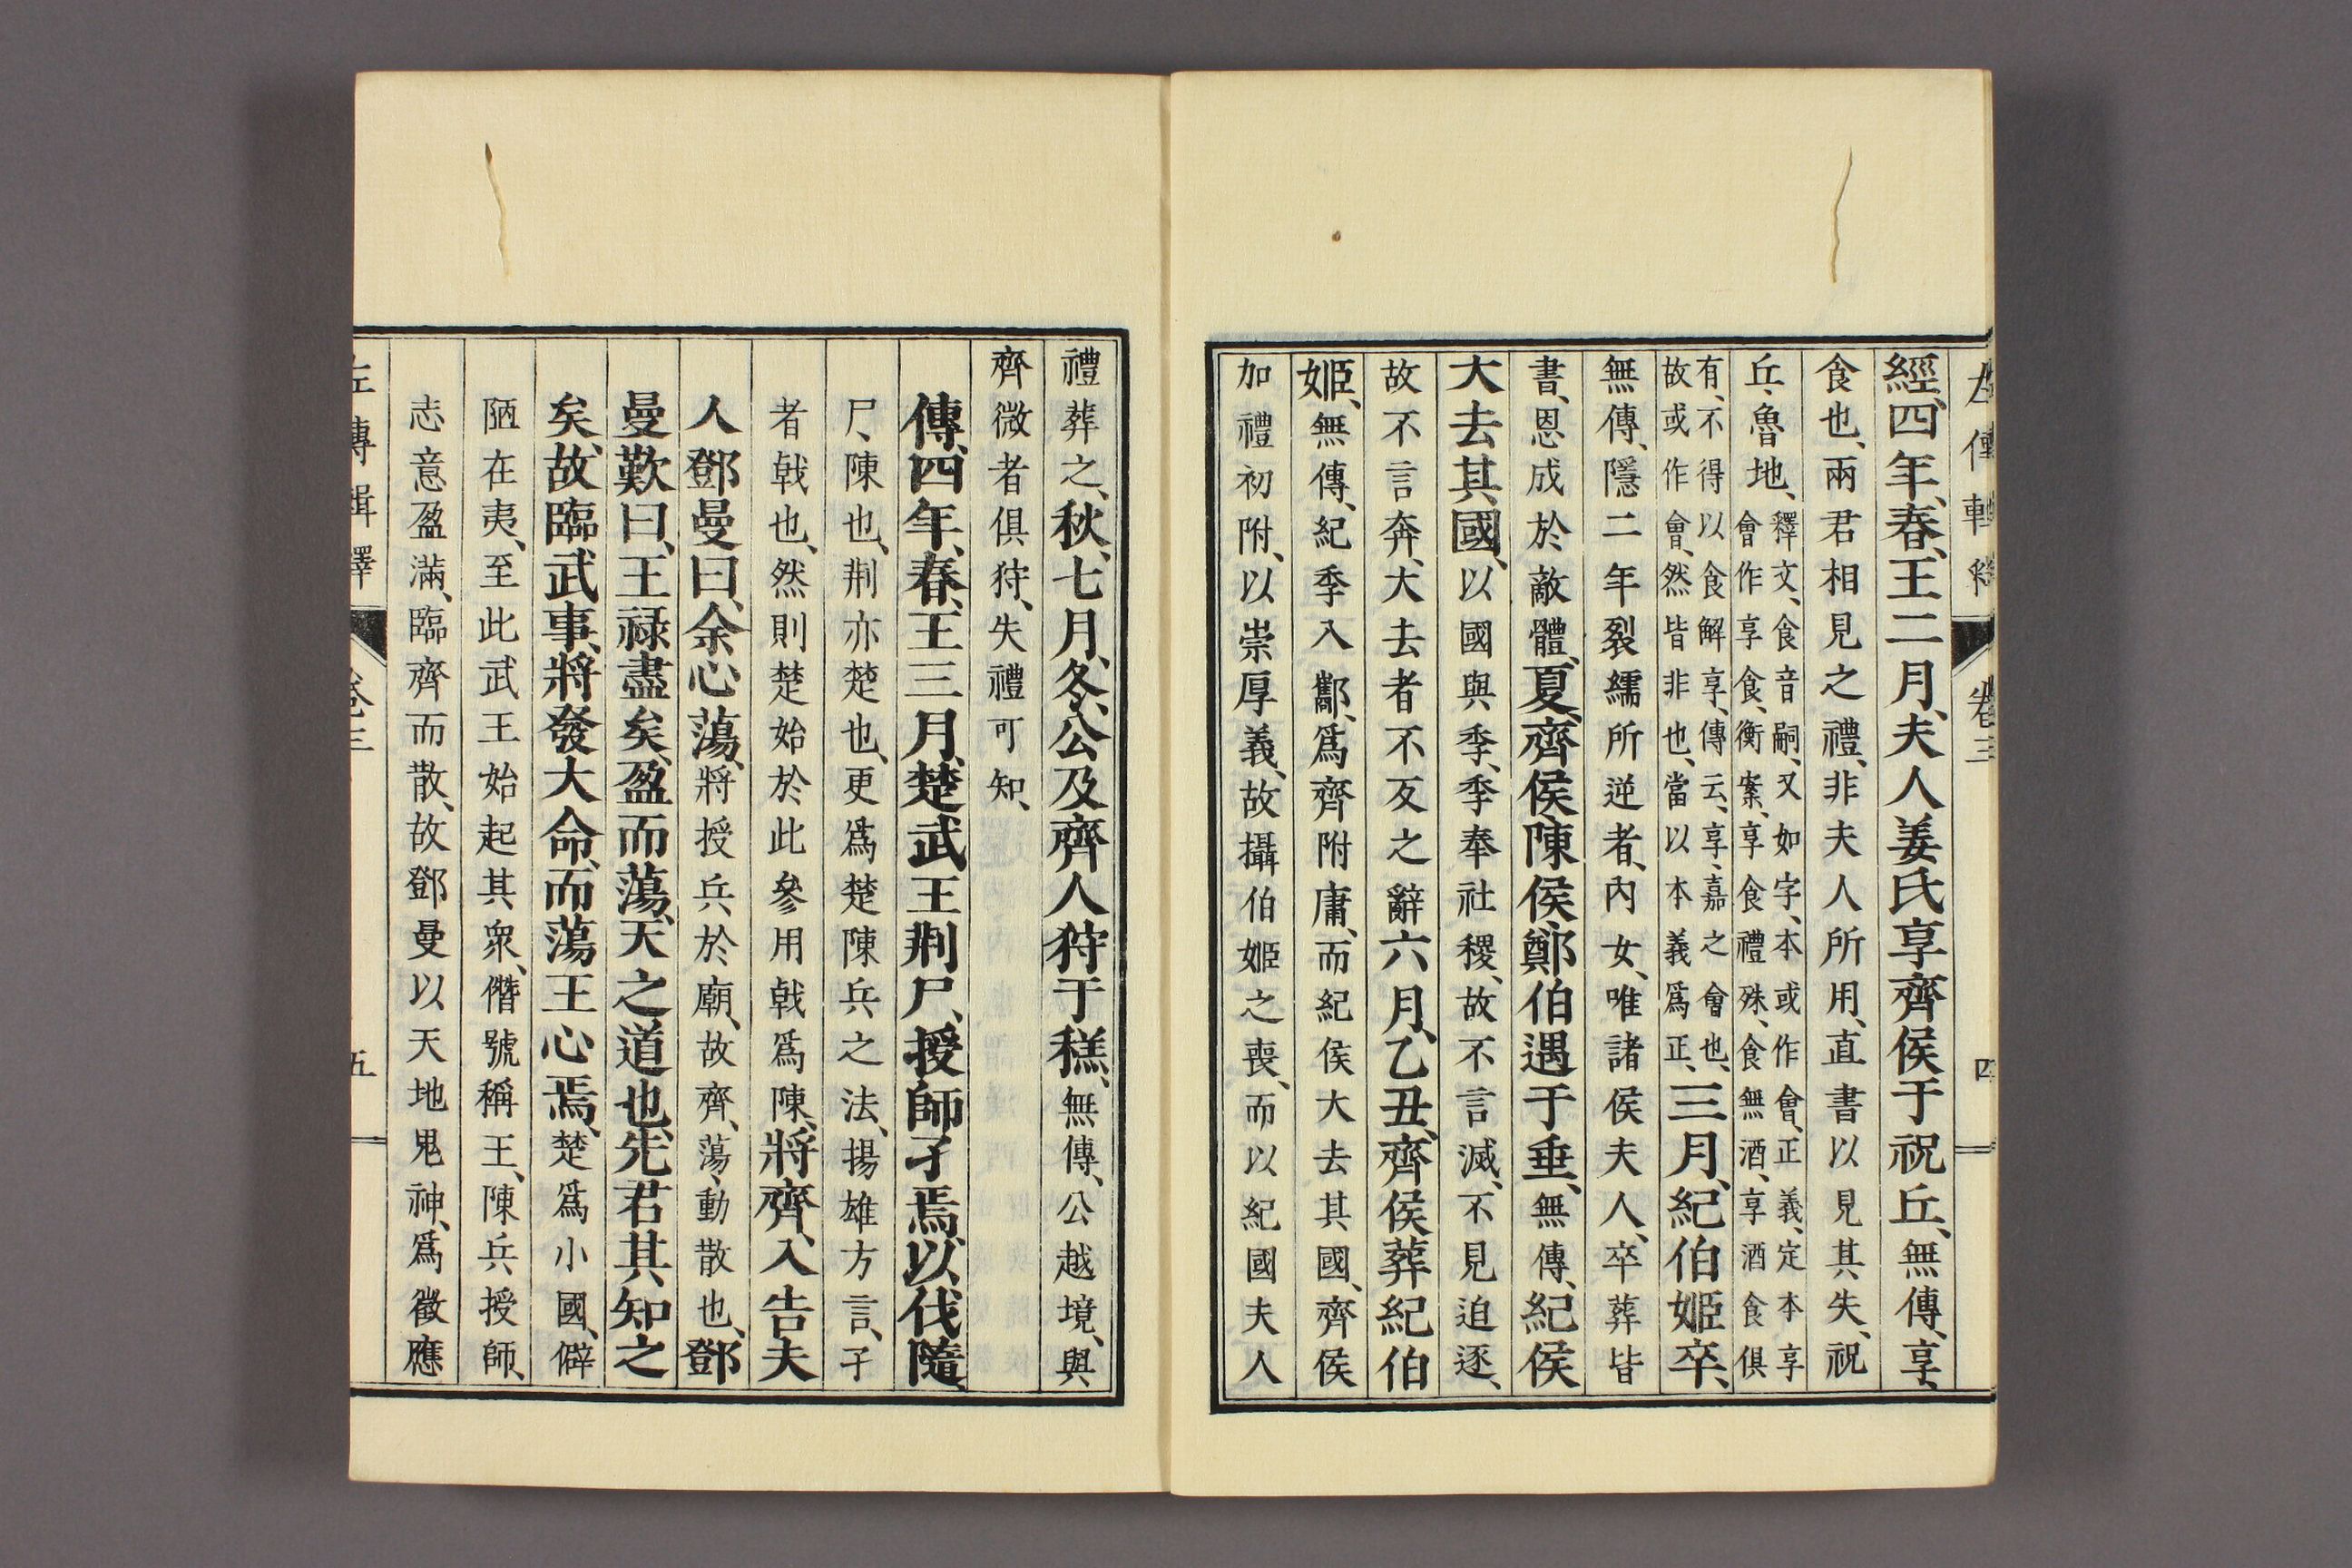 左傳輯釋 卷三 四
經、四年、春、王二月、夫人姜氏享齊侯于祝丘、無傳、享、
食也、兩君相見之禮、非夫人所用、直書以見其失、祝
丘、魯地、釋文、食音嗣、又如字、本或作會、正義、定本享
會作享食、衡案、享食禮殊、食無酒、享酒食俱
有、不得以食解享、傳云、享、嘉之會也、
故或作會、然皆非也、當以本義爲正、三月、紀伯姬卒、
無傳、隱二年裂繻所逆者、內女、唯諸侯夫人、卒葬皆
書、恩成於敵體、夏、齊侯、陳侯、鄭伯遇于垂、無傳、紀侯
大去其國、以國與季、季奉社稷、故不言滅、不見迫逐、
故不言奔、大去者不反之辭六月、乙丑、齊侯葬紀伯
姬、無傳、紀季入酅、爲齊附庸、而紀侯大去其國、齊侯
加禮初附、以崇厚義、故攝伯姬之喪、而以紀國夫人
禮葬之、秋、七月、冬、公及齊人狩于禚、無傳、公越境、與
齊微者俱狩、失禮可知、
傳、四年、春、王三月、楚武王荆尸、授師孑焉、以伐隨、
尸、陳也、荆亦楚也、更爲楚陳兵之法、揚雄方言、孑
者戟也、然則楚始於此參用戟爲陳、將齊、入告夫
人鄧曼曰、余心蕩、將授兵於廟、故齊、蕩、動散也、鄧
曼歎曰、王祿盡矣、盈而蕩、天之道也、先君其知之
矣、故臨武事、將發大命、而蕩王心焉、楚爲小國、僻
陋在夷、至此武王始起其衆、僭號稱王、陳兵授師、
志意盈滿、臨齊而散、故鄧曼以天地鬼神、爲徵應
左傳輯釋 卷三 五